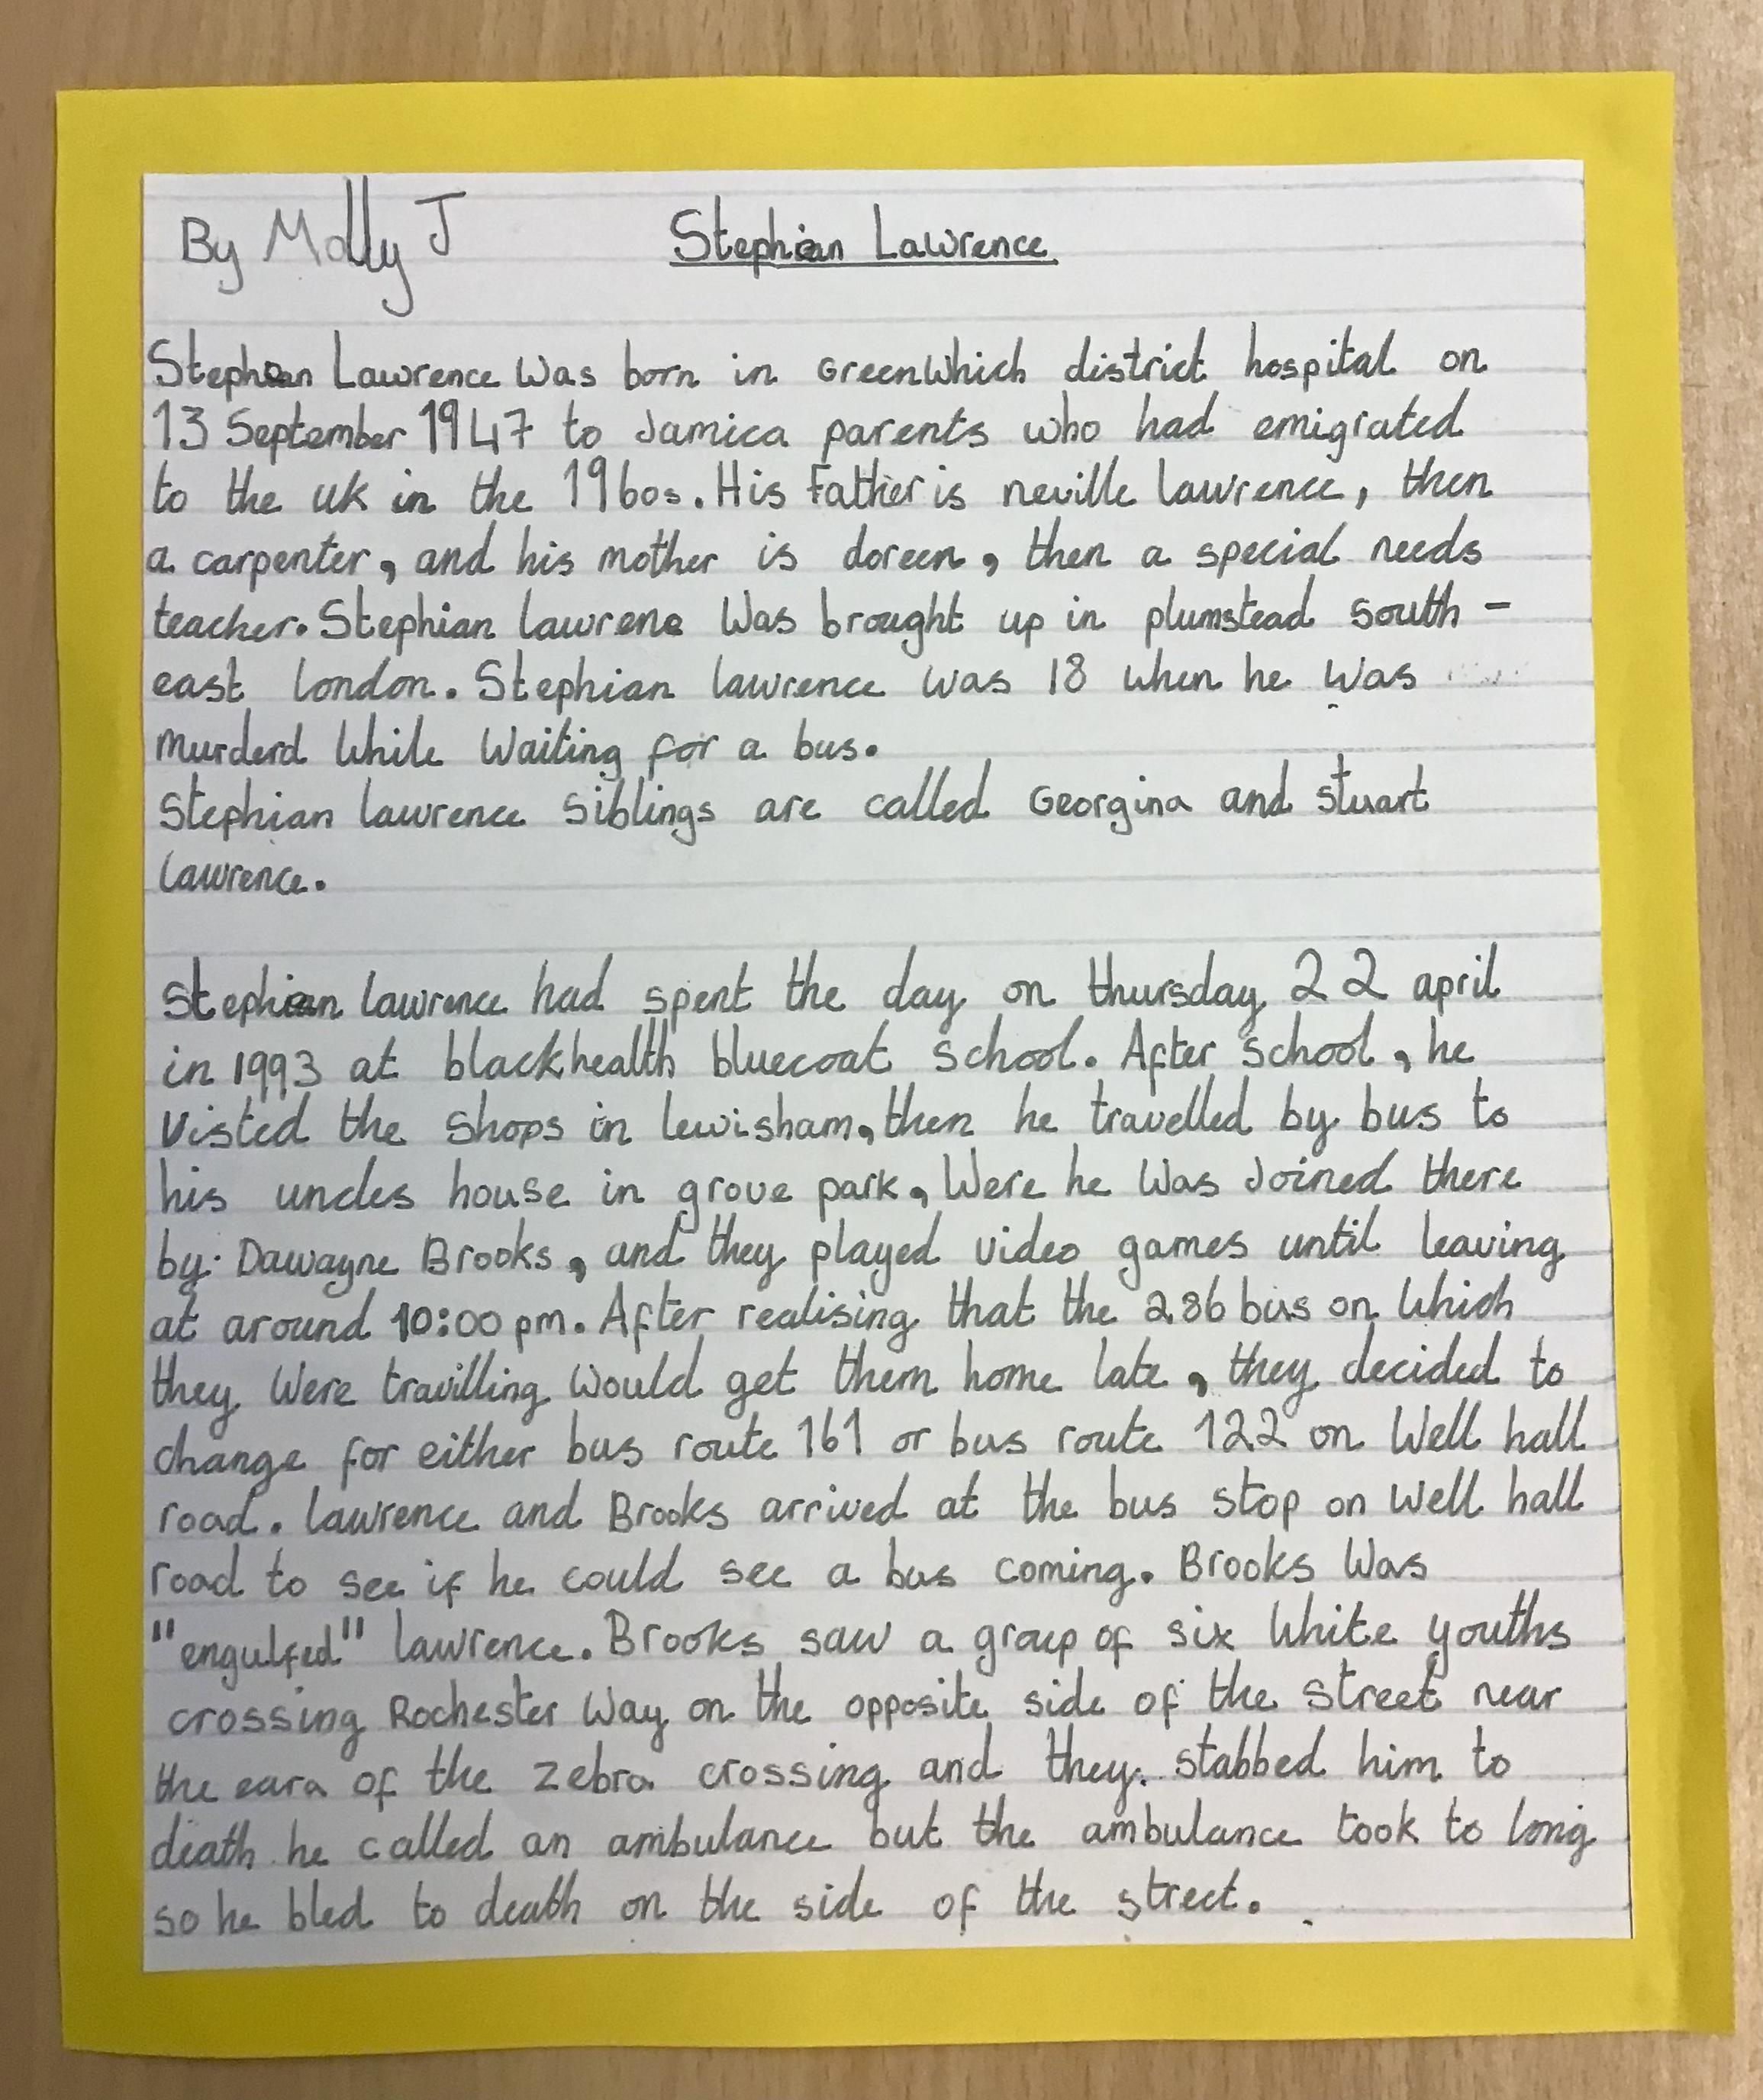 By Molly J Stephian Lawrence
Stephan Lawrence Was born in GreenWhich district hospital on
13 September 1947 to Jamica parents who had emigrated
to the uk in the 1960s. His Father is neville lawrence, then
a carpenter, and his mother is doreen, then a special needs
teacher. Stephian lawrene Was brought up in plumstead South -
east london. Stephian lawrence was 18 when he was
murderd While Waiting for a bus.
Stephian lawrence Siblings are called Georgina and stuart
lawrence.
Stephian lawrence had spent the day on thursday 22 april
in 1993 at blackhealth bluecoat school. After school, he
Visted the shops in lewisham, then he travelled by bus to
his uncles house in grove park, Were he Was Joined there
by Dawayne Brooks, and they played video games until leaving
at around 10:00 pm. After realising that the 286 bus on which
they Were travilling Would get them home late, they decided to
change for either bus route 161 or bus route 122 on Well hall
road. lawrence and Brooks arrived at the bus stop on Well hall
road to see if he could see a bus coming. Brooks Was
"engulfed" lawrence. Brooks saw a group of six White youths
crossing Rochester Way on the opposite side of the street near
the eara of the zebra crossing and they stabbed him to
death he called an ambulance but the ambulance took to long
so he bled to death on the side of the street.